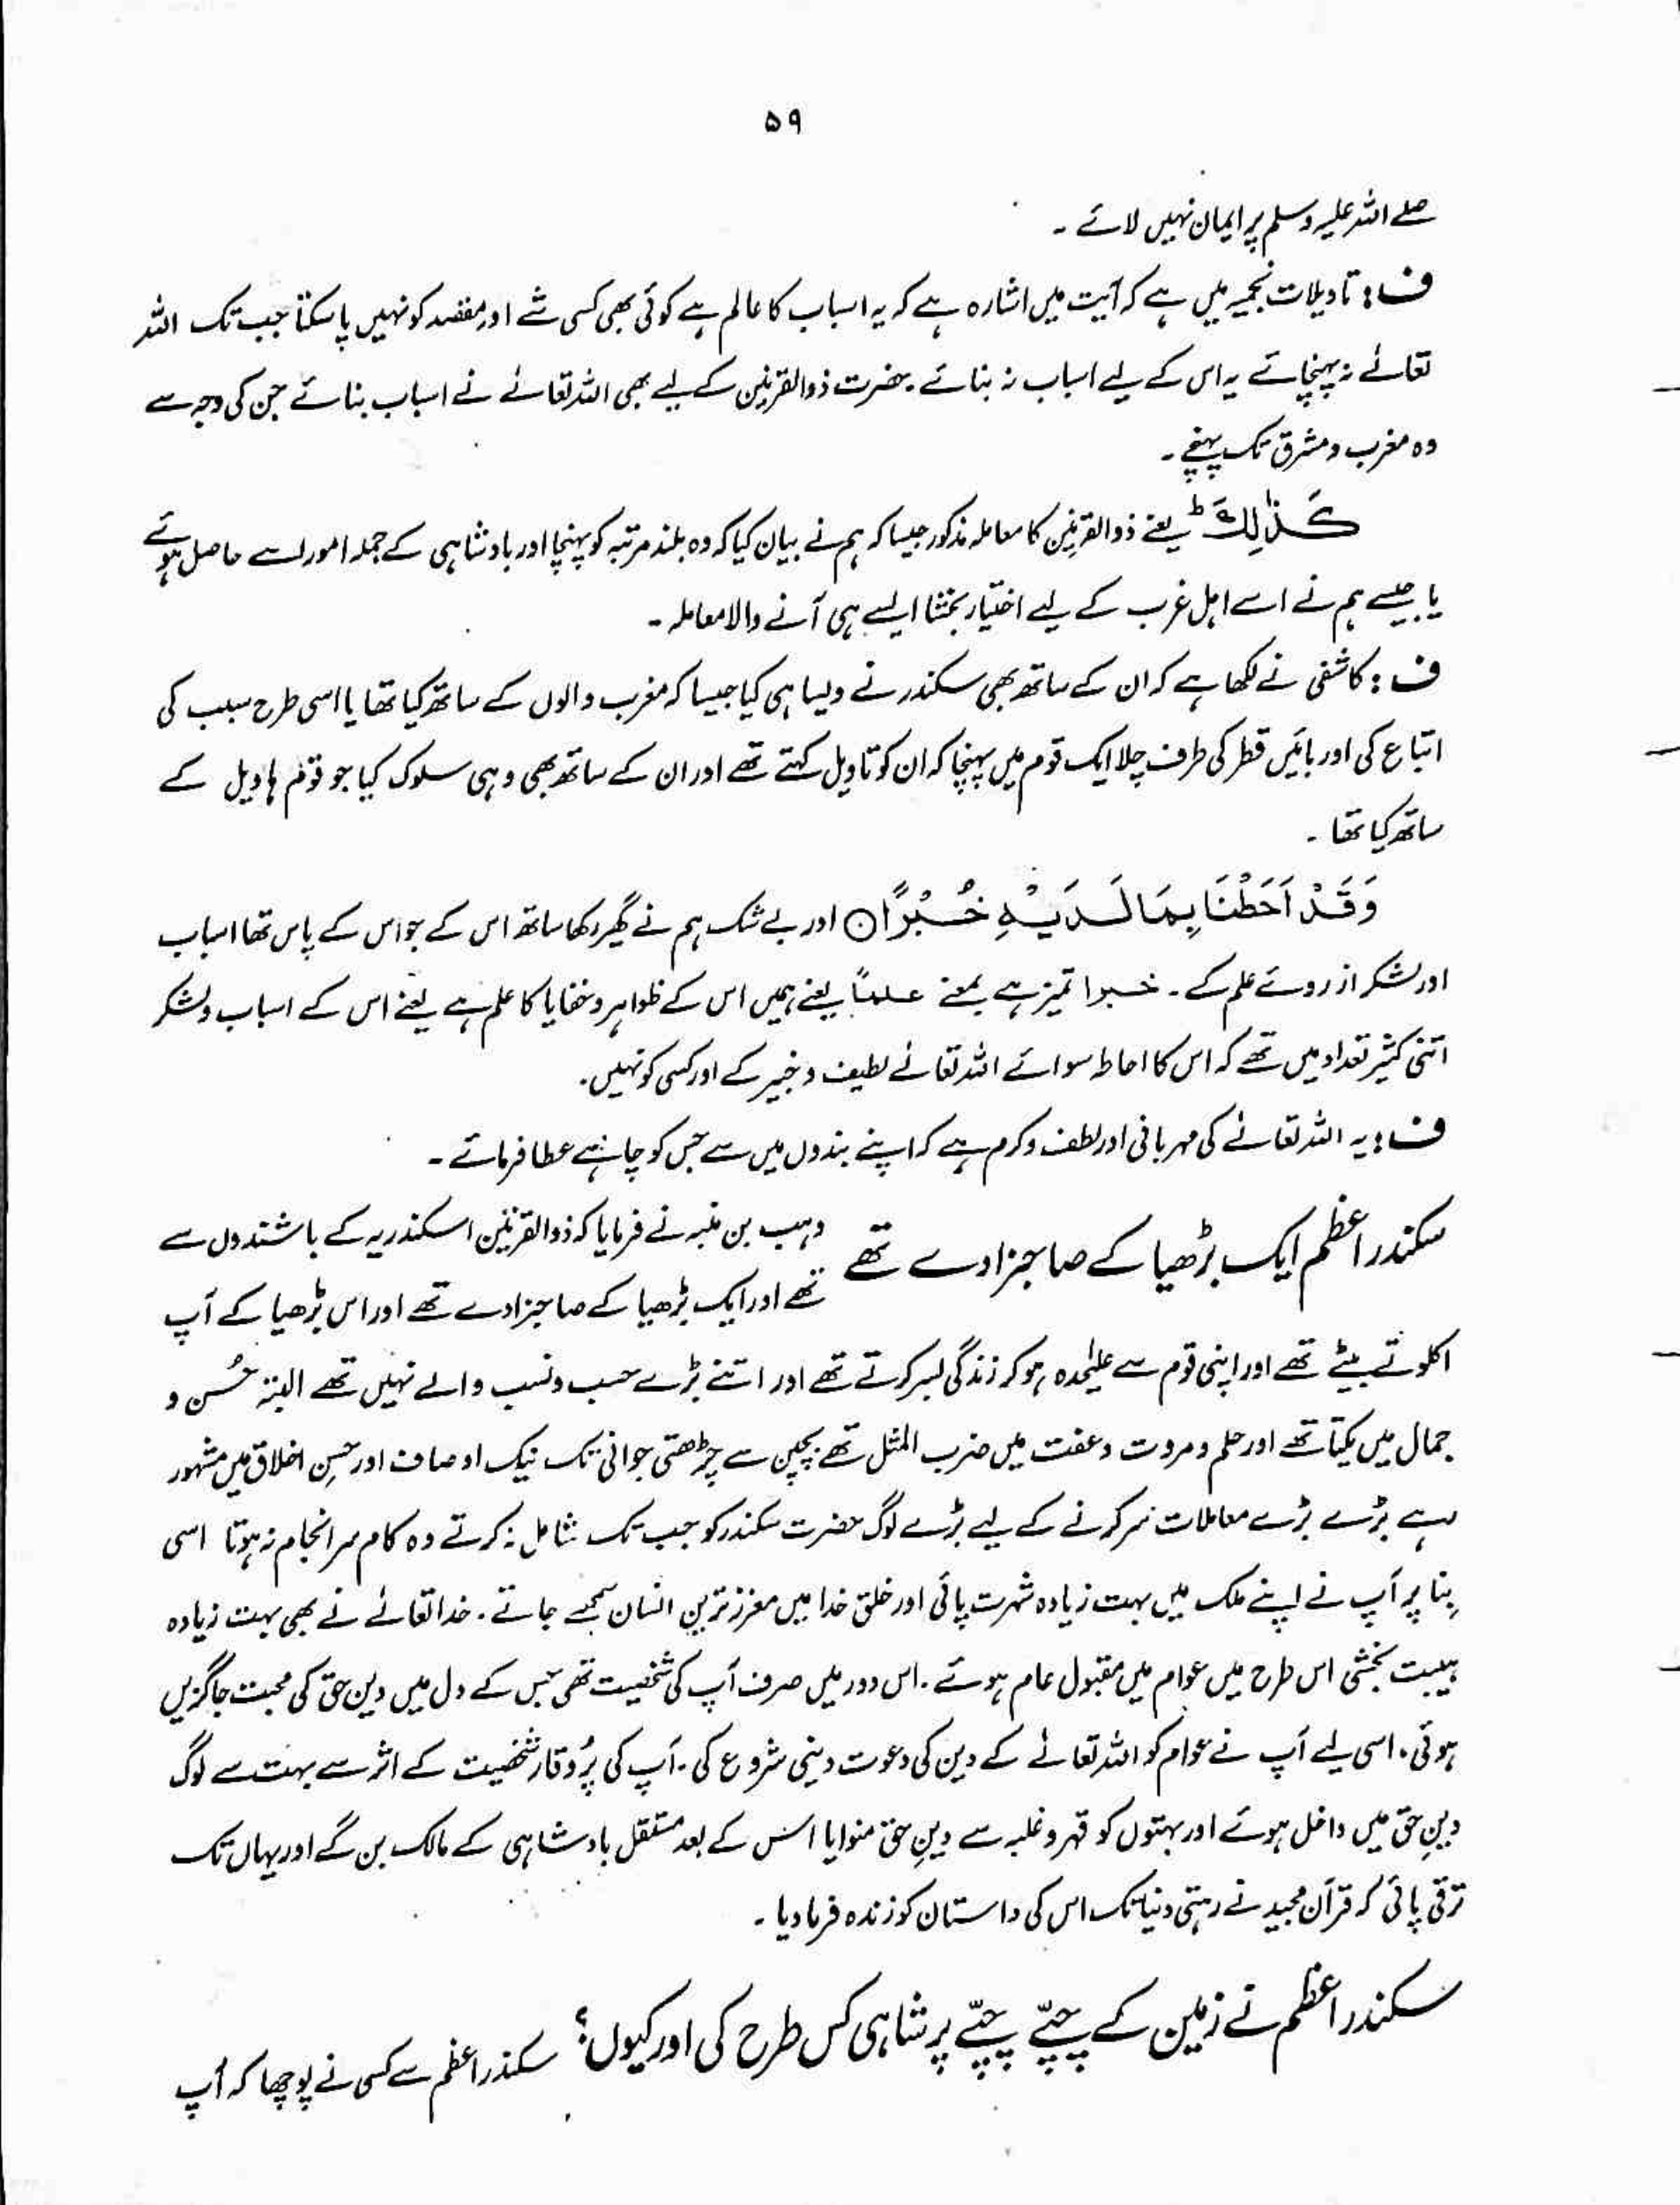 ۵۹
صلے اللہ علیہ وسلم پر ایمان نہیں لائے ۔
ف : تاویلات نجمیہ میں ہے کہ آیت میں اشارہ ہے کہ یہ اسباب کا عالم ہے کوئی بھی کسی شے اور مقصد کو نہیں پا سکتا جب تک اللہ
تعالےٰ نہ پہنچائے یہ اس کے لیے اسباب نہ بنائے ۔ حضرت ذوالقرنین کے لیے بھی اللہ تعالےٰ نے اسباب بنائے جن کی وجہ سے
وہ مغرب و مشرق تک پہنچے ۔
كَذٰلِكَ ؕ یعنے ذوالقرنین کا معاملہ مذکور جیسا کہ ہم نے بیان کیا کہ وہ بلند مرتبہ کو پہنچا اور بادشاہی کے جملہ امور اسے حاصل ہوئے
یا جیسے ہم نے اسے اہل غرب کے لیے اختیار بخشا ایسے ہی آنے والا معاملہ ۔
ف : کاشفی نے لکھا ہے کہ ان کے ساتھ بھی سکندر نے ویسا ہی کیا جیسا کہ مغرب والوں کے ساتھ کیا تھا یا اسی طرح سبب کی
اتباع کی اور بائیں قطر کی طرف چلا ایک قوم میں پہنچا کہ ان کو تاویل کہتے تھے اور ان کے ساتھ بھی وہی سلوک کیا جو قوم ہاویل کے
ساتھ کیا تھا ۔
وَقَدْ اَحَطْنَا بِمَا لَدَيْهِ خُبْرًا ۝ اور بے شک ہم نے گھیر رکھا ساتھ اس کے جو اس کے پاس تھا اسباب
اور لشکر از روئے علم کے ۔ خبرا تمیز ہے بمعنے علماً یعنے ہمیں اس کے ظواہر و خفایا کا علم ہے یعنے اس کے اسباب و لشکر
اتنی کثیر تعداد میں تھے کہ اس کا احاطہ سوائے اللہ تعالےٰ لطیف و خبیر کے اور کسی کو نہیں ۔
ف : یہ اللہ تعالےٰ کی مہربانی اور لطف و کرم ہے کہ اپنے بندوں میں سے جس کو چاہے عطا فرمائے ۔
سکندر اعظم ایک بڑھیا کے صاحبزادے تھے وہب بن منبہ نے فرمایا کہ ذوالقرنین اسکندریہ کے باشندوں سے
تھے اور ایک بڑھیا کے صاحبزادے تھے اور اس بڑھیا کے آپ
اکلوتے بیٹے تھے اور اپنی قوم سے علیٰحدہ ہو کر زندگی بسر کرتے تھے اور اتنے بڑے حسب و نسب والے نہیں تھے البتہ حُسن و
جمال میں یکتا تھے اور حلم و مروت و عفت میں ضرب المثل تھے بچپن سے چڑھتی جوانی تک نیک اوصاف اور حسنِ اخلاق میں مشہور
رہے بڑے بڑے معاملات سر کرنے کے لیے بڑے لوگ حضرت سکندر کو جب تک شامل نہ کرتے وہ کام سر انجام نہ ہوتا اسی
بِنا پر آپ نے اپنے ملک میں بہت زیادہ شہرت پائی اور خلق خدا میں معزز ترین انسان سمجھے جاتے ۔ خدا تعالےٰ نے بھی بہت زیادہ
ہیبت بخشی اس طرح میں عوام میں مقبول عام ہوئے ۔ اس دور میں صرف آپ کی شخصیت تھی جس کے دل میں دین حق کی محبت جاگزیں
ہوئی ۔ اسی لیے آپ نے عوام کو اللہ تعالےٰ کے دین کی دعوت دینی شروع کی ۔ آپ کی پُر وقار شخصیت کے اثر سے بہت سے لوگ
دینِ حق میں داخل ہوئے اور بہتوں کو قہر و غلبہ سے دینِ حق منوایا اس کے بعد مستقل بادشاہی کے مالک بن گے اور یہاں تک
ترقی پائی کہ قرآن مجید نے رہتی دنیا تک اس کی داستان کو زندہ فرما دیا ۔
سکندر اعظم نے زمین کے چپّے چپّے پر شاہی کس طرح کی اور کیوں؟ سکندر اعظم سے کسی نے پوچھا کہ آپ